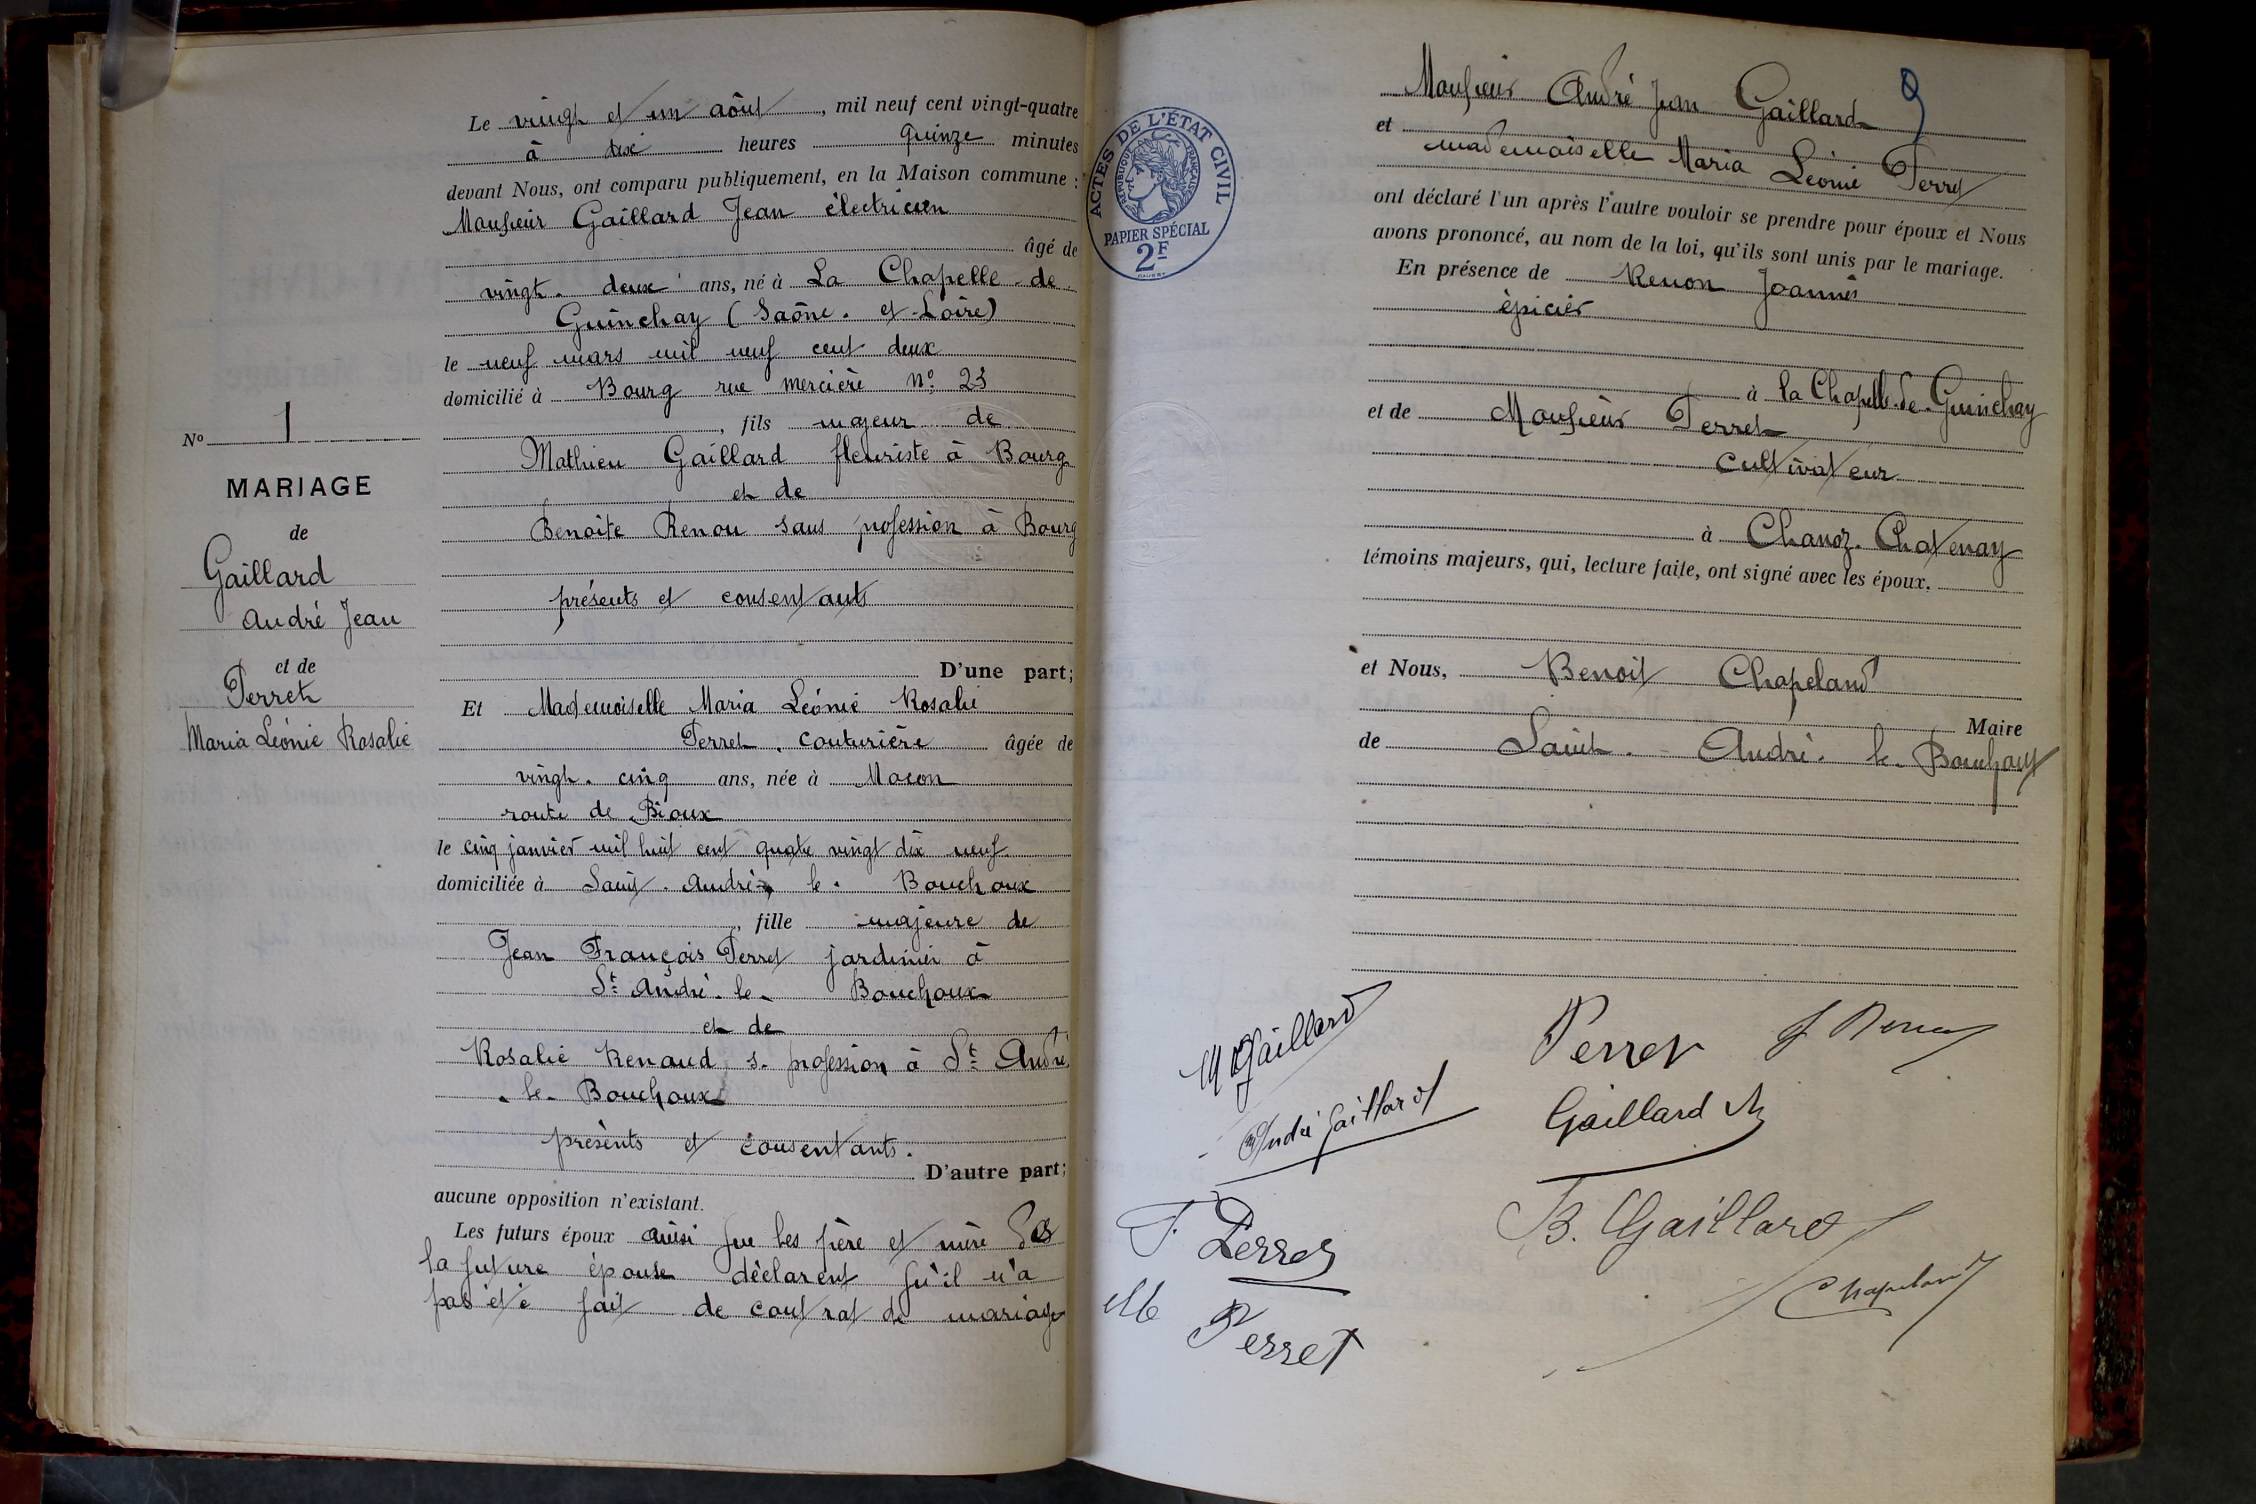 Le vingt et un août, mil neuf cent vingt-quatre
à dix heures quinze minutes
devant Nous, ont comparu publiquement, en la Maison commune :
Monsieur Gaillard Jean électricien
âgé de
vingt-deux ans, né à La Chapelle-de-
Guinchay (Saône-et-Loire)
le neuf mars mil neuf cent deux
domicilié à Bourg rue mercière No 23
, fils majeur de
Mathieu Gaillard fleuriste à Bourg
et de
Benoîte Renou sans profession à Bourg
présents et consentants
D'une part;
Et Mademoiselle Maria Léonie Rosalie
Perret, couturière âgée de
vingt-cinq ans, née à Macon
route de Bioux
le cinq janvier mil huit cent quatre vingt dix neuf
domiciliée à Saint-André-le-Bouchoux
, fille majeure de
Jean François Perret jardinier à
St André-le-Bouchoux
et de
Rosalie Renaud, s. profession à St André
-le-Bouchoux
présents et consentants.
D'autre part;
aucune opposition n'existant.
Les futurs époux ainsi que les père et mère de
la future épouse déclarent qu'il n'a
pas été fait de contrat de mariage
No 1
MARIAGE
de
Gaillard
André Jean
et de
Perret
Maria Léonie Rosalie
9
Monsieur André Jean Gaillard
et
mademoiselle Maria Léonie Perret
ont déclaré l'un après l'autre vouloir se prendre pour époux et Nous
avons prononcé, au nom de la loi, qu'ils sont unis par le mariage.
En présence de Renon Joannès
épicier
à la Chapelle-de-Guinchay
et de Monsieur Perret
cultivateur
à Chanoz-Chatenay
témoins majeurs, qui, lecture faite, ont signé avec les époux.
et Nous, Benoit Chapeland
Maire
de Saint-André-le-Bouchoux
ACTES DE L'ÉTAT CIVIL
RÉPUBLIQUE FRANÇAISE
PAPIER SPÉCIAL
2F
M Gaillard
Perret
J Renon
André Gaillard
Gaillard
F. Perret
B. Gaillard
Chapeland
Perret